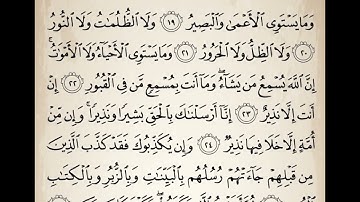 وَمَا يَسْتَوِى الْأَعْمَىٰ وَالْبَصِيرُ ١٩ وَلَا الظُّلُمَٰتُ وَلَا النُّورُ
٢٠ وَلَا الظِّلُّ وَلَا الْحَرُورُ ٢١ وَمَا يَسْتَوِى الْأَحْيَاءُ وَلَا الْأَمْوَٰتُ
إِنَّ اللَّهَ يُسْمِعُ مَن يَشَاءُ وَمَا أَنتَ بِمُسْمِعٍ مَّن فِى الْقُبُورِ ٢٢ إِنْ
أَنتَ إِلَّا نَذِيرٌ ٢٣ إِنَّا أَرْسَلْنَٰكَ بِالْحَقِّ بَشِيرًا وَنَذِيرًا وَإِن مِّنْ
أُمَّةٍ إِلَّا خَلَا فِيهَا نَذِيرٌ ٢٤ وَإِن يُكَذِّبُوكَ فَقَدْ كَذَّبَ الَّذِينَ
مِن قَبْلِهِمْ جَاءَتْهُمْ رُسُلُهُم بِالْبَيِّنَٰتِ وَبِالزُّبُرِ وَبِالْكِتَٰبِ